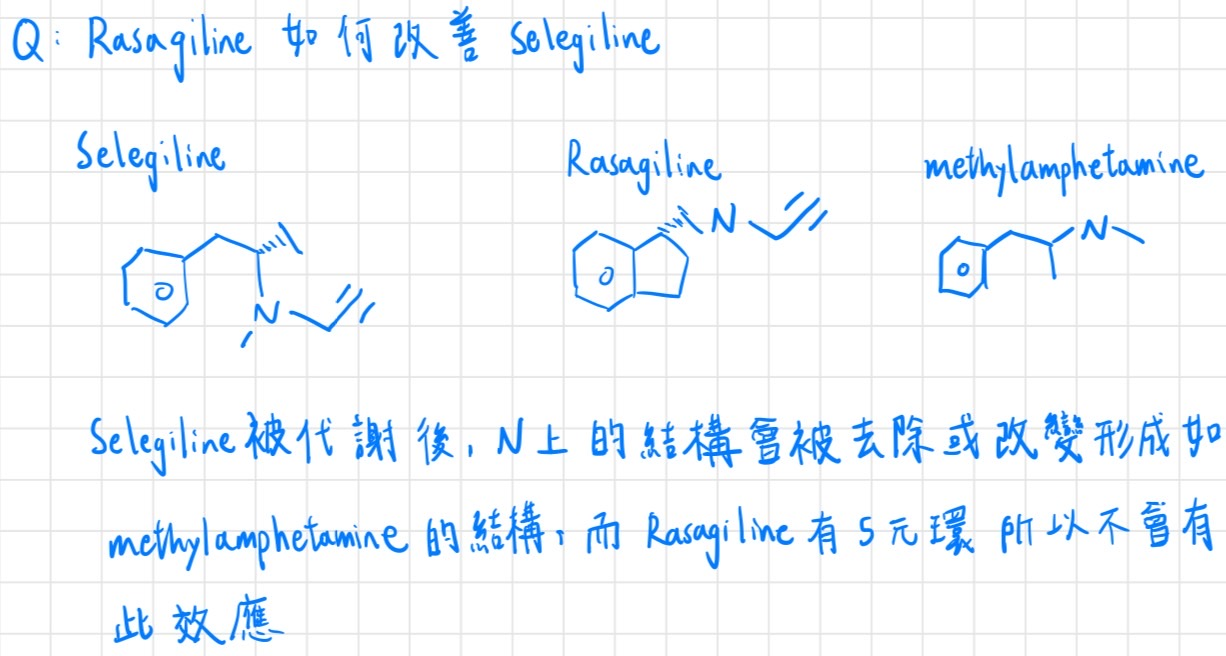 Q: Rasagiline 如何改善 Selegiline
Selegiline
Rasagiline
methylamphetamine
N
N
N
Selegiline 被代謝後, N上的結構會被去除或改變形成如
methylamphetamine 的結構, 而 Rasagiline 有 5 元環 所以不會有
此效應